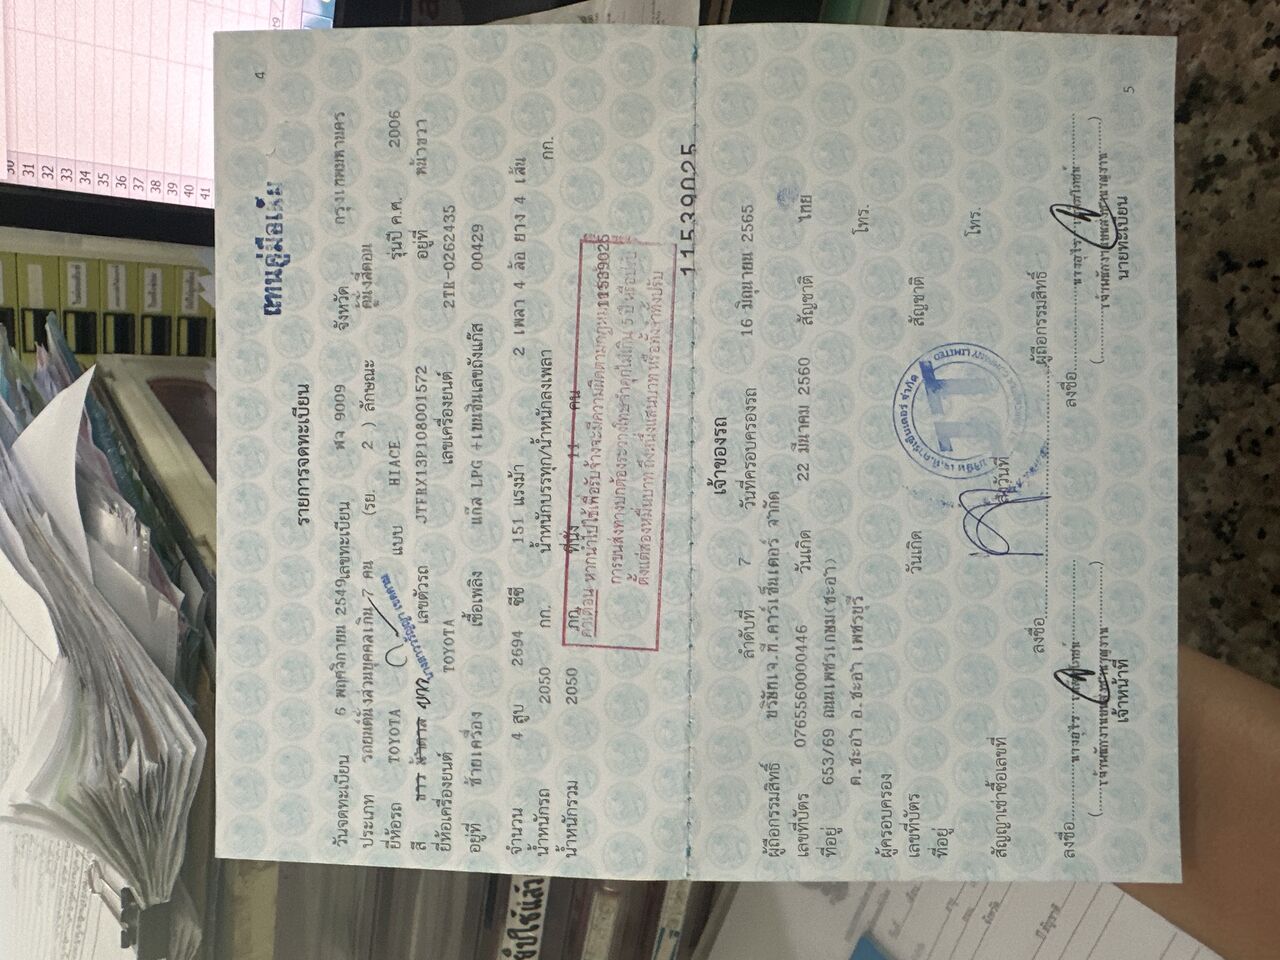 4
แทนคู่มือเดิม
รายการจดทะเบียน
วันจดทะเบียน 6 พฤศจิกายน 2549 เลขทะเบียน ฬจ 9009 จังหวัด กรุงเทพมหานคร
ประเภท รถยนต์นั่งส่วนบุคคลเกิน 7 คน (รย. 2 ) ลักษณะ ตู้นั่งสี่ตอน
ยี่ห้อรถ TOYOTA แบบ HIACE รุ่นปี ค.ศ. 2006
สี ขาว เลขตัวรถ JTFRX13P108001572 อยู่ที่ หน้าขวา
ยี่ห้อเครื่องยนต์ TOYOTA เลขเครื่องยนต์ 2TR-0262435
อยู่ที่ ซ้ายเครื่อง เชื้อเพลิง แก๊ส LPG +เบนซินเลขถังแก๊ส 00429
จำนวน 4 สูบ 2694 ซีซี 151 แรงม้า 2 เพลา 4 ล้อ ยาง 4 เส้น
น้ำหนักรถ 2050 กก. น้ำหนักบรรทุก/น้ำหนักลงเพลา กก.
น้ำหนักรวม 2050 กก. ที่นั่ง 11 คน
คำเตือน หากนำไปใช้เพื่อรับจ้างจะมีความผิดตามกฎหมาย
การขนส่งทางบกต้องระวางโทษจำคุกไม่เกิน 5 ปี หรือปรับ
ตั้งแต่สองหมื่นบาทถึงหนึ่งแสนบาท หรือทั้งจำทั้งปรับ
11539025
11539025
เจ้าของรถ
ลำดับที่ 7 วันที่ครอบครองรถ 16 มิถุนายน 2565
ผู้ถือกรรมสิทธิ์ บริษัทเจ.ที.คาร์เซ็นเตอร์ จำกัด
เลขที่บัตร 0765560000446 วันเกิด 22 มีนาคม 2560 สัญชาติ ไทย
ที่อยู่ 653/69 ถนนเพชรเกษม(ชะอำ)
ต.ชะอำ อ.ชะอำ เพชรบุรี โทร.
ผู้ครอบครอง
เลขที่บัตร วันเกิด สัญชาติ
ที่อยู่
โทร.
สัญญาเช่าซื้อเลขที่ ลงวันที่
บริษัท เจ.ที.คาร์เซ็นเตอร์ จำกัด
COMPANY LIMITED
ลงชื่อ ผู้ถือกรรมสิทธิ์
ลงชื่อ ลงชื่อ
เจ้าหน้าที่ นายทะเบียน
5
31
32
33
34
35
36
37
38
39
40
41